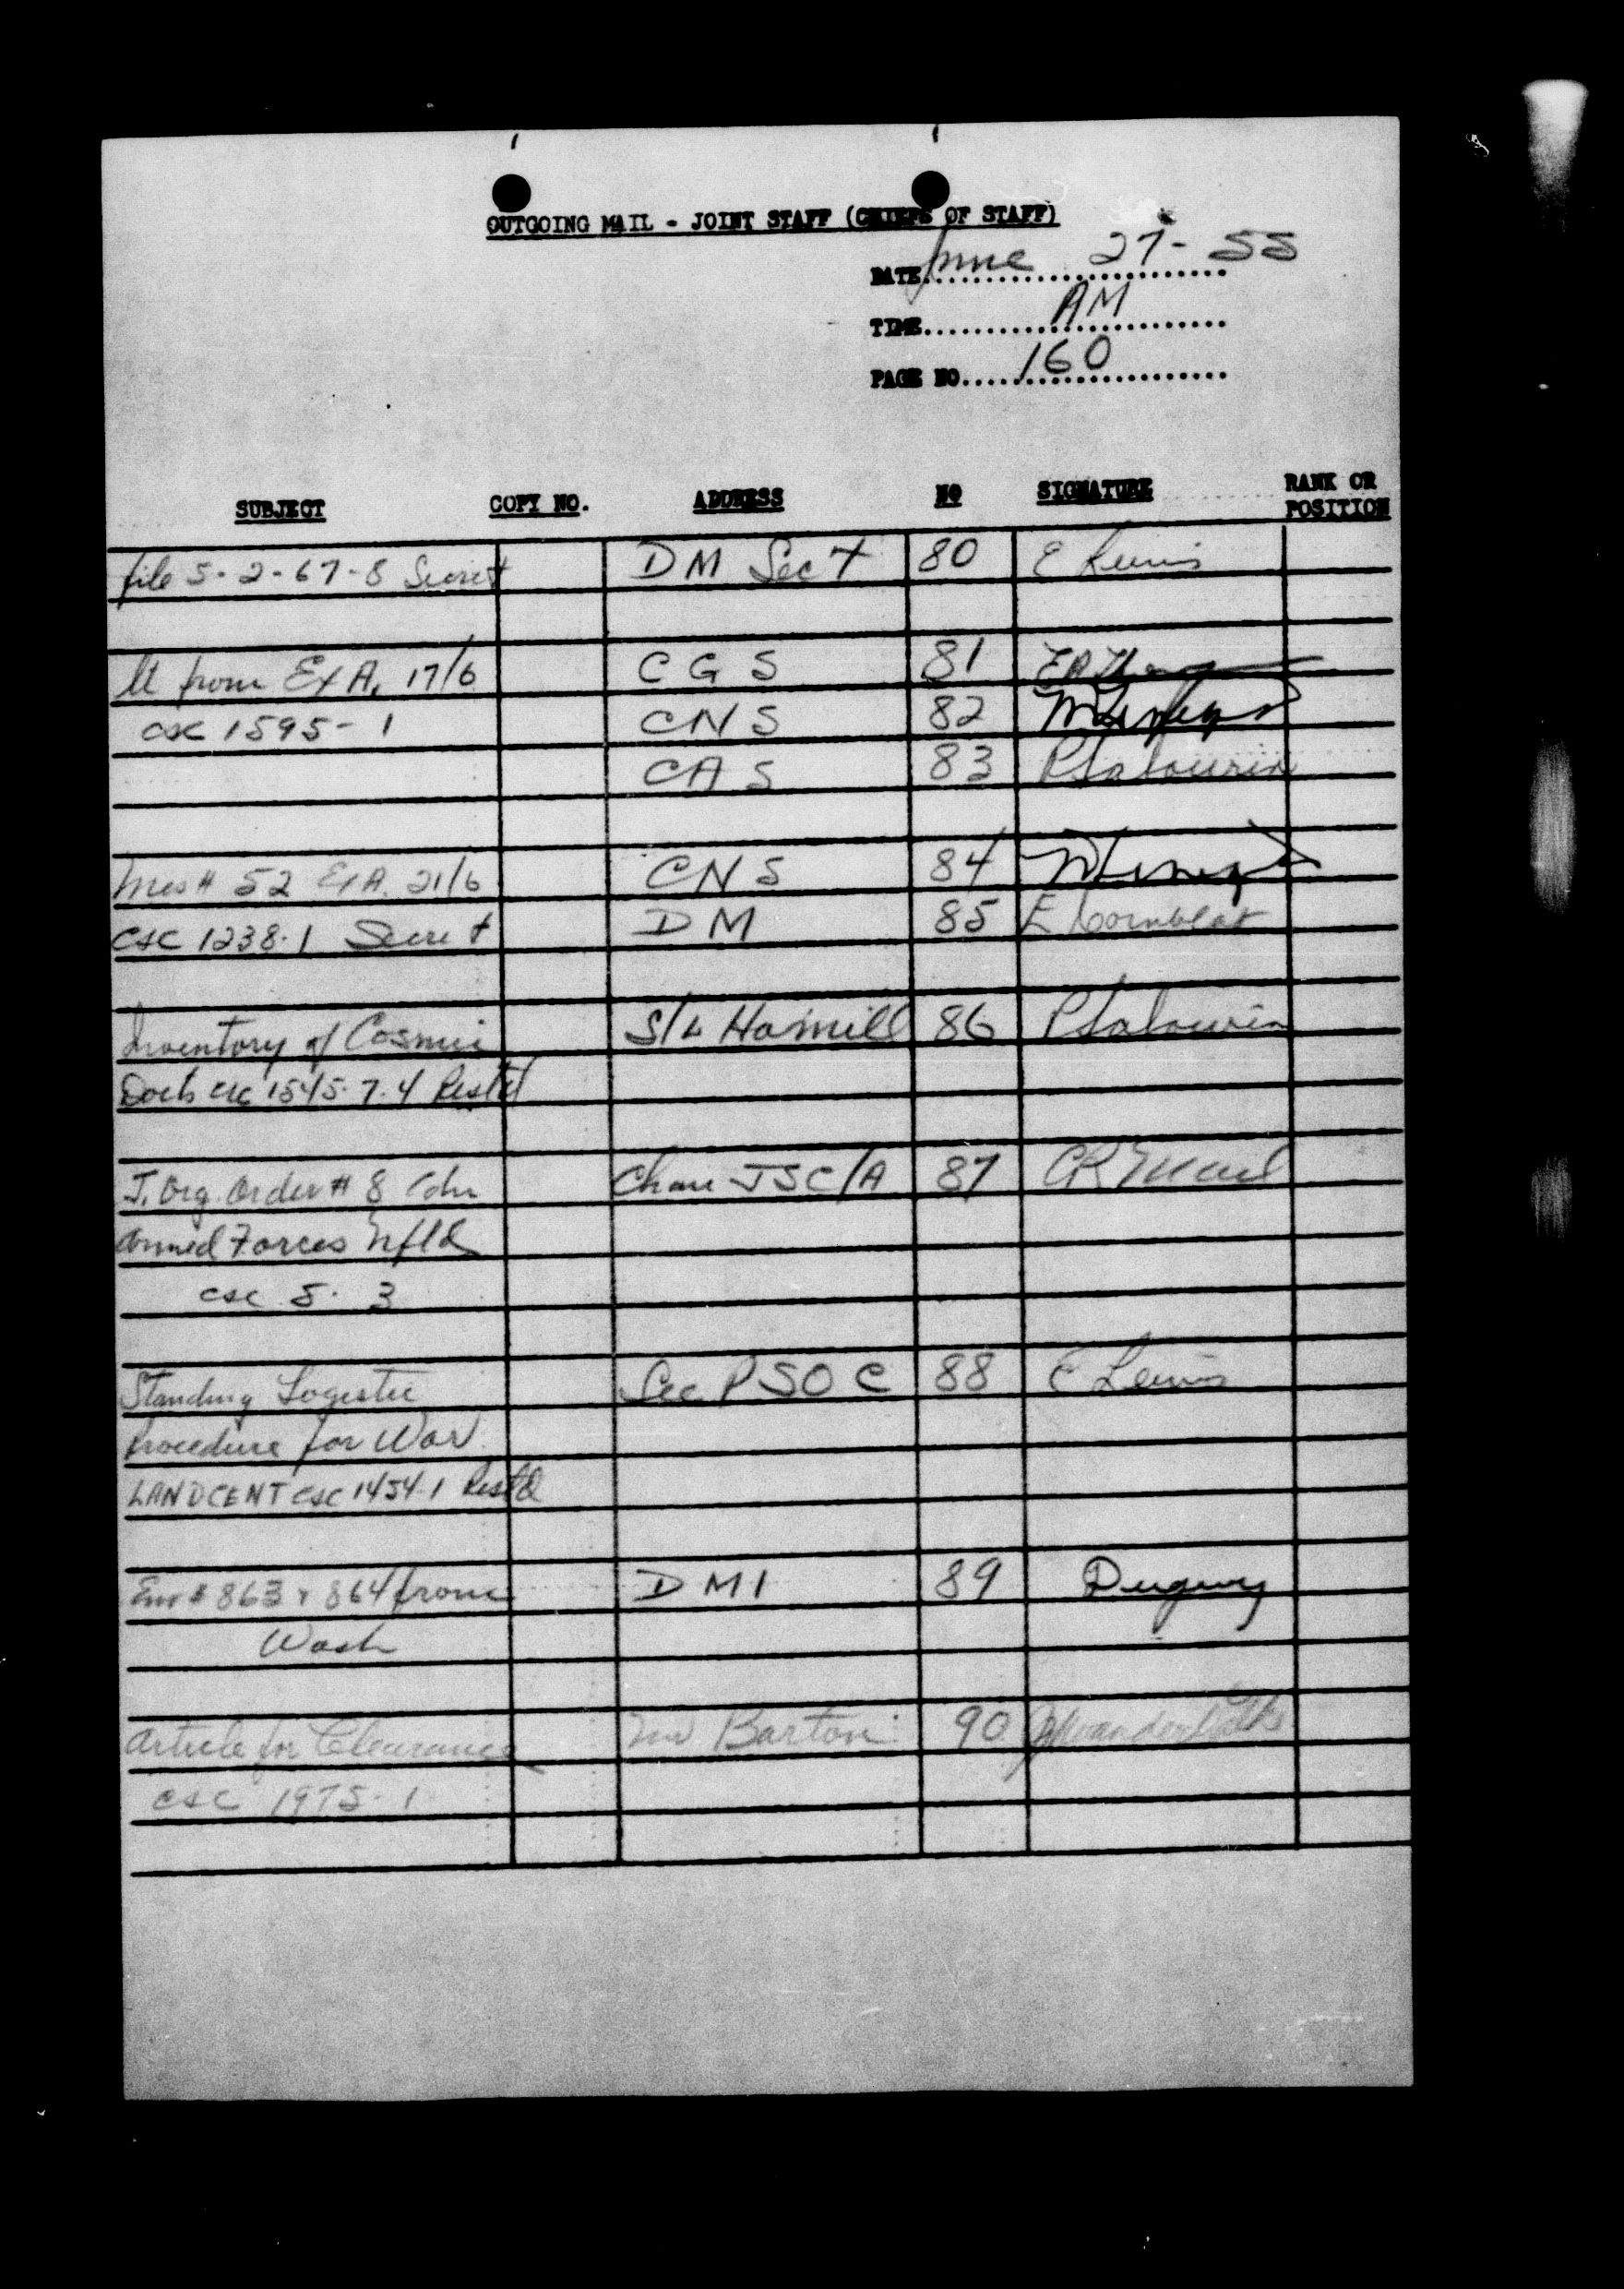 OUTGOING MAIL - JOINT STAFF (CHIEFS OF STAFF)
DATE June 27-55
TIME AM
PAGE NO 160
SUBJECT COPY NO. ADDRESS NO SIGNATURE RANK OR POSITION
file 5-2-67-8 Secret DM Sec't 80 E Lewis
lt from Ex A, 17/6 CGS 81
csc 1595-1 CNS 82
CAS 83 P Sabourin
Mes # 52 Ex A. 21/6 CNS 84
CSC 1238.1 Secret DM 85 E
Inventory of Cosmic S/L Hamill 86 P Sabourin
Docts csc 1545.7.4 Rest'd
J. Org. Order # 8 Cdn JSC/A 87 CR
Armed Forces Nfld
csc 5. 3
Standing Logistic Sec PSOC 88 E Lewis
Procedure for War
LANDCENT csc 1454.1 Rest'd
Env # 863 & 864 from DMI 89
Wash
Article for Clearance Mr Barton 90
csc 1975.1